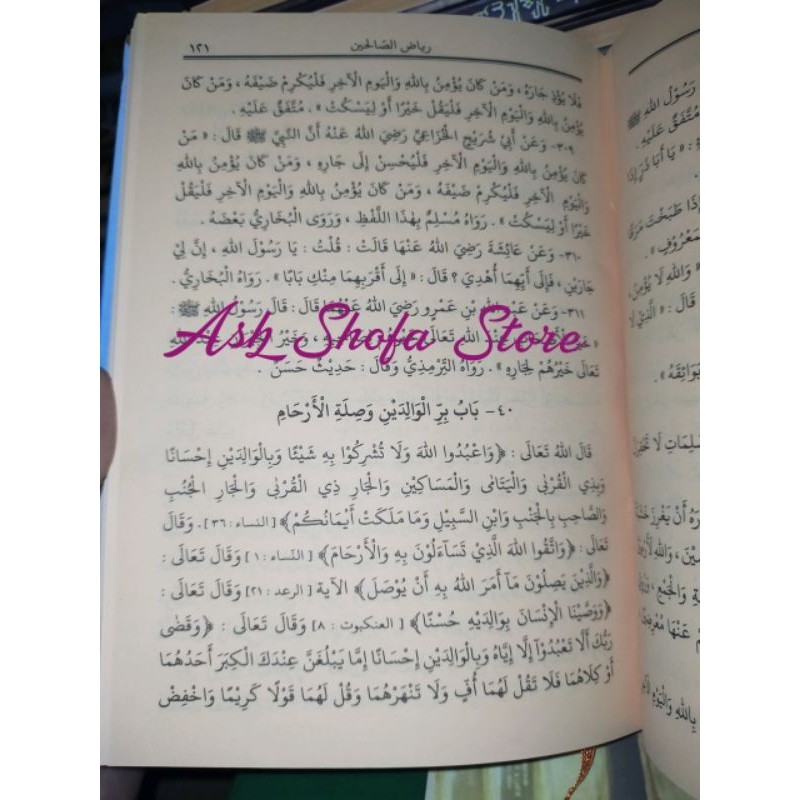 رياض الصالحين ١٢١
فَلَا يُؤْذِ جَارَهُ ، وَمَنْ كَانَ يُؤْمِنُ بِاللهِ وَالْيَوْمِ الْآخِرِ فَلْيُكْرِمْ ضَيْفَهُ ، وَمَنْ كَانَ
يُؤْمِنُ بِاللهِ وَالْيَوْمِ الْآخِرِ فَلْيَقُلْ خَيْرًا أَوْ لِيَسْكُتْ » . مُتَّفَقٌ عَلَيْهِ .
٣٠٩- وَعَنْ أَبِي شُرَيْحٍ الْخُزَاعِيِّ رَضِيَ اللهُ عَنْهُ أَنَّ النَّبِيَّ ﷺ قَالَ : « مَنْ
كَانَ يُؤْمِنُ بِاللهِ وَالْيَوْمِ الْآخِرِ فَلْيُحْسِنْ إِلَى جَارِهِ ، وَمَنْ كَانَ يُؤْمِنُ بِاللهِ
وَالْيَوْمِ الْآخِرِ فَلْيُكْرِمْ ضَيْفَهُ ، وَمَنْ كَانَ يُؤْمِنُ بِاللهِ وَالْيَوْمِ الْآخِرِ فَلْيَقُلْ
خَيْرًا أَوْ لِيَسْكُتْ » . رَوَاهُ مُسْلِمٌ بِهٰذَا اللَّفْظِ ، وَرَوَى الْبُخَارِيُّ بَعْضَهُ .
٣١٠- وَعَنْ عَائِشَةَ رَضِيَ اللهُ عَنْهَا قَالَتْ : قُلْتُ : يَا رَسُوْلَ اللهِ ، إِنَّ لِيْ
جَارَيْنِ ، فَإِلَى أَيِّهِمَا أُهْدِيْ ؟ قَالَ : « إِلَى أَقْرَبِهِمَا مِنْكِ بَابًا » . رَوَاهُ الْبُخَارِيُّ .
٣١١- وَعَنْ عَبْدِ اللهِ بْنِ عَمْرٍو رَضِيَ اللهُ عَنْهُمَا قَالَ : قَالَ رَسُوْلُ اللهِ ﷺ :
Ask Shofa Store
« خَيْرُ عِنْدَ اللهِ تَعَالَى ، وَخَيْرُ اللهِ
تَعَالَى خَيْرُهُمْ لِجَارِهِ » . رَوَاهُ التِّرْمِذِيُّ وَقَالَ : حَدِيْثٌ حَسَنٌ .
٤٠- بَابُ بِرِّ الْوَالِدَيْنِ وَصِلَةِ الْأَرْحَامِ
قَالَ اللهُ تَعَالَى : ﴿وَاعْبُدُوا اللهَ وَلَا تُشْرِكُوْا بِهِ شَيْئًا وَبِالْوَالِدَيْنِ إِحْسَانًا
وَبِذِي الْقُرْبٰى وَالْيَتَامٰى وَالْمَسَاكِيْنِ وَالْجَارِ ذِي الْقُرْبٰى وَالْجَارِ الْجُنُبِ
وَالصَّاحِبِ بِالْجَنْبِ وَابْنِ السَّبِيْلِ وَمَا مَلَكَتْ أَيْمَانُكُمْ﴾ [النساء : ٣٦] . وَقَالَ
تَعَالَى : ﴿وَاتَّقُوا اللهَ الَّذِيْ تَسَاءَلُوْنَ بِهِ وَالْأَرْحَامَ﴾ [النساء : ١] وَقَالَ تَعَالَى :
﴿وَالَّذِيْنَ يَصِلُوْنَ مَآ أَمَرَ اللهُ بِهِ أَنْ يُوْصَلَ﴾ الآية [الرعد : ٢١] وَقَالَ تَعَالَى :
﴿وَوَصَّيْنَا الْإِنْسَانَ بِوَالِدَيْهِ حُسْنًا﴾ [العنكبوت : ٨] وَقَالَ تَعَالَى : ﴿وَقَضٰى
رَبُّكَ أَلَّا تَعْبُدُوْآ إِلَّا إِيَّاهُ وَبِالْوَالِدَيْنِ إِحْسَانًا إِمَّا يَبْلُغَنَّ عِنْدَكَ الْكِبَرَ أَحَدُهُمَا
أَوْ كِلَاهُمَا فَلَا تَقُلْ لَهُمَا أُفٍّ وَلَا تَنْهَرْهُمَا وَقُلْ لَهُمَا قَوْلًا كَرِيْمًا وَاخْفِضْ
رَسُوْلُ اللهِ ﷺ
مُتَّفَقٌ عَلَيْهِ .
: « يَا أَبَا ذَرٍّ إِذَا
إِذَا طَبَخْتَ
« وَاللهِ لَا يُؤْمِنُ،
قَالَ : « الَّذِيْ لَا
بَوَائِقَهُ » .
أَنْ يَغْرِزَ
عَنْهَا
بِاللهِ وَالْيَوْمِ